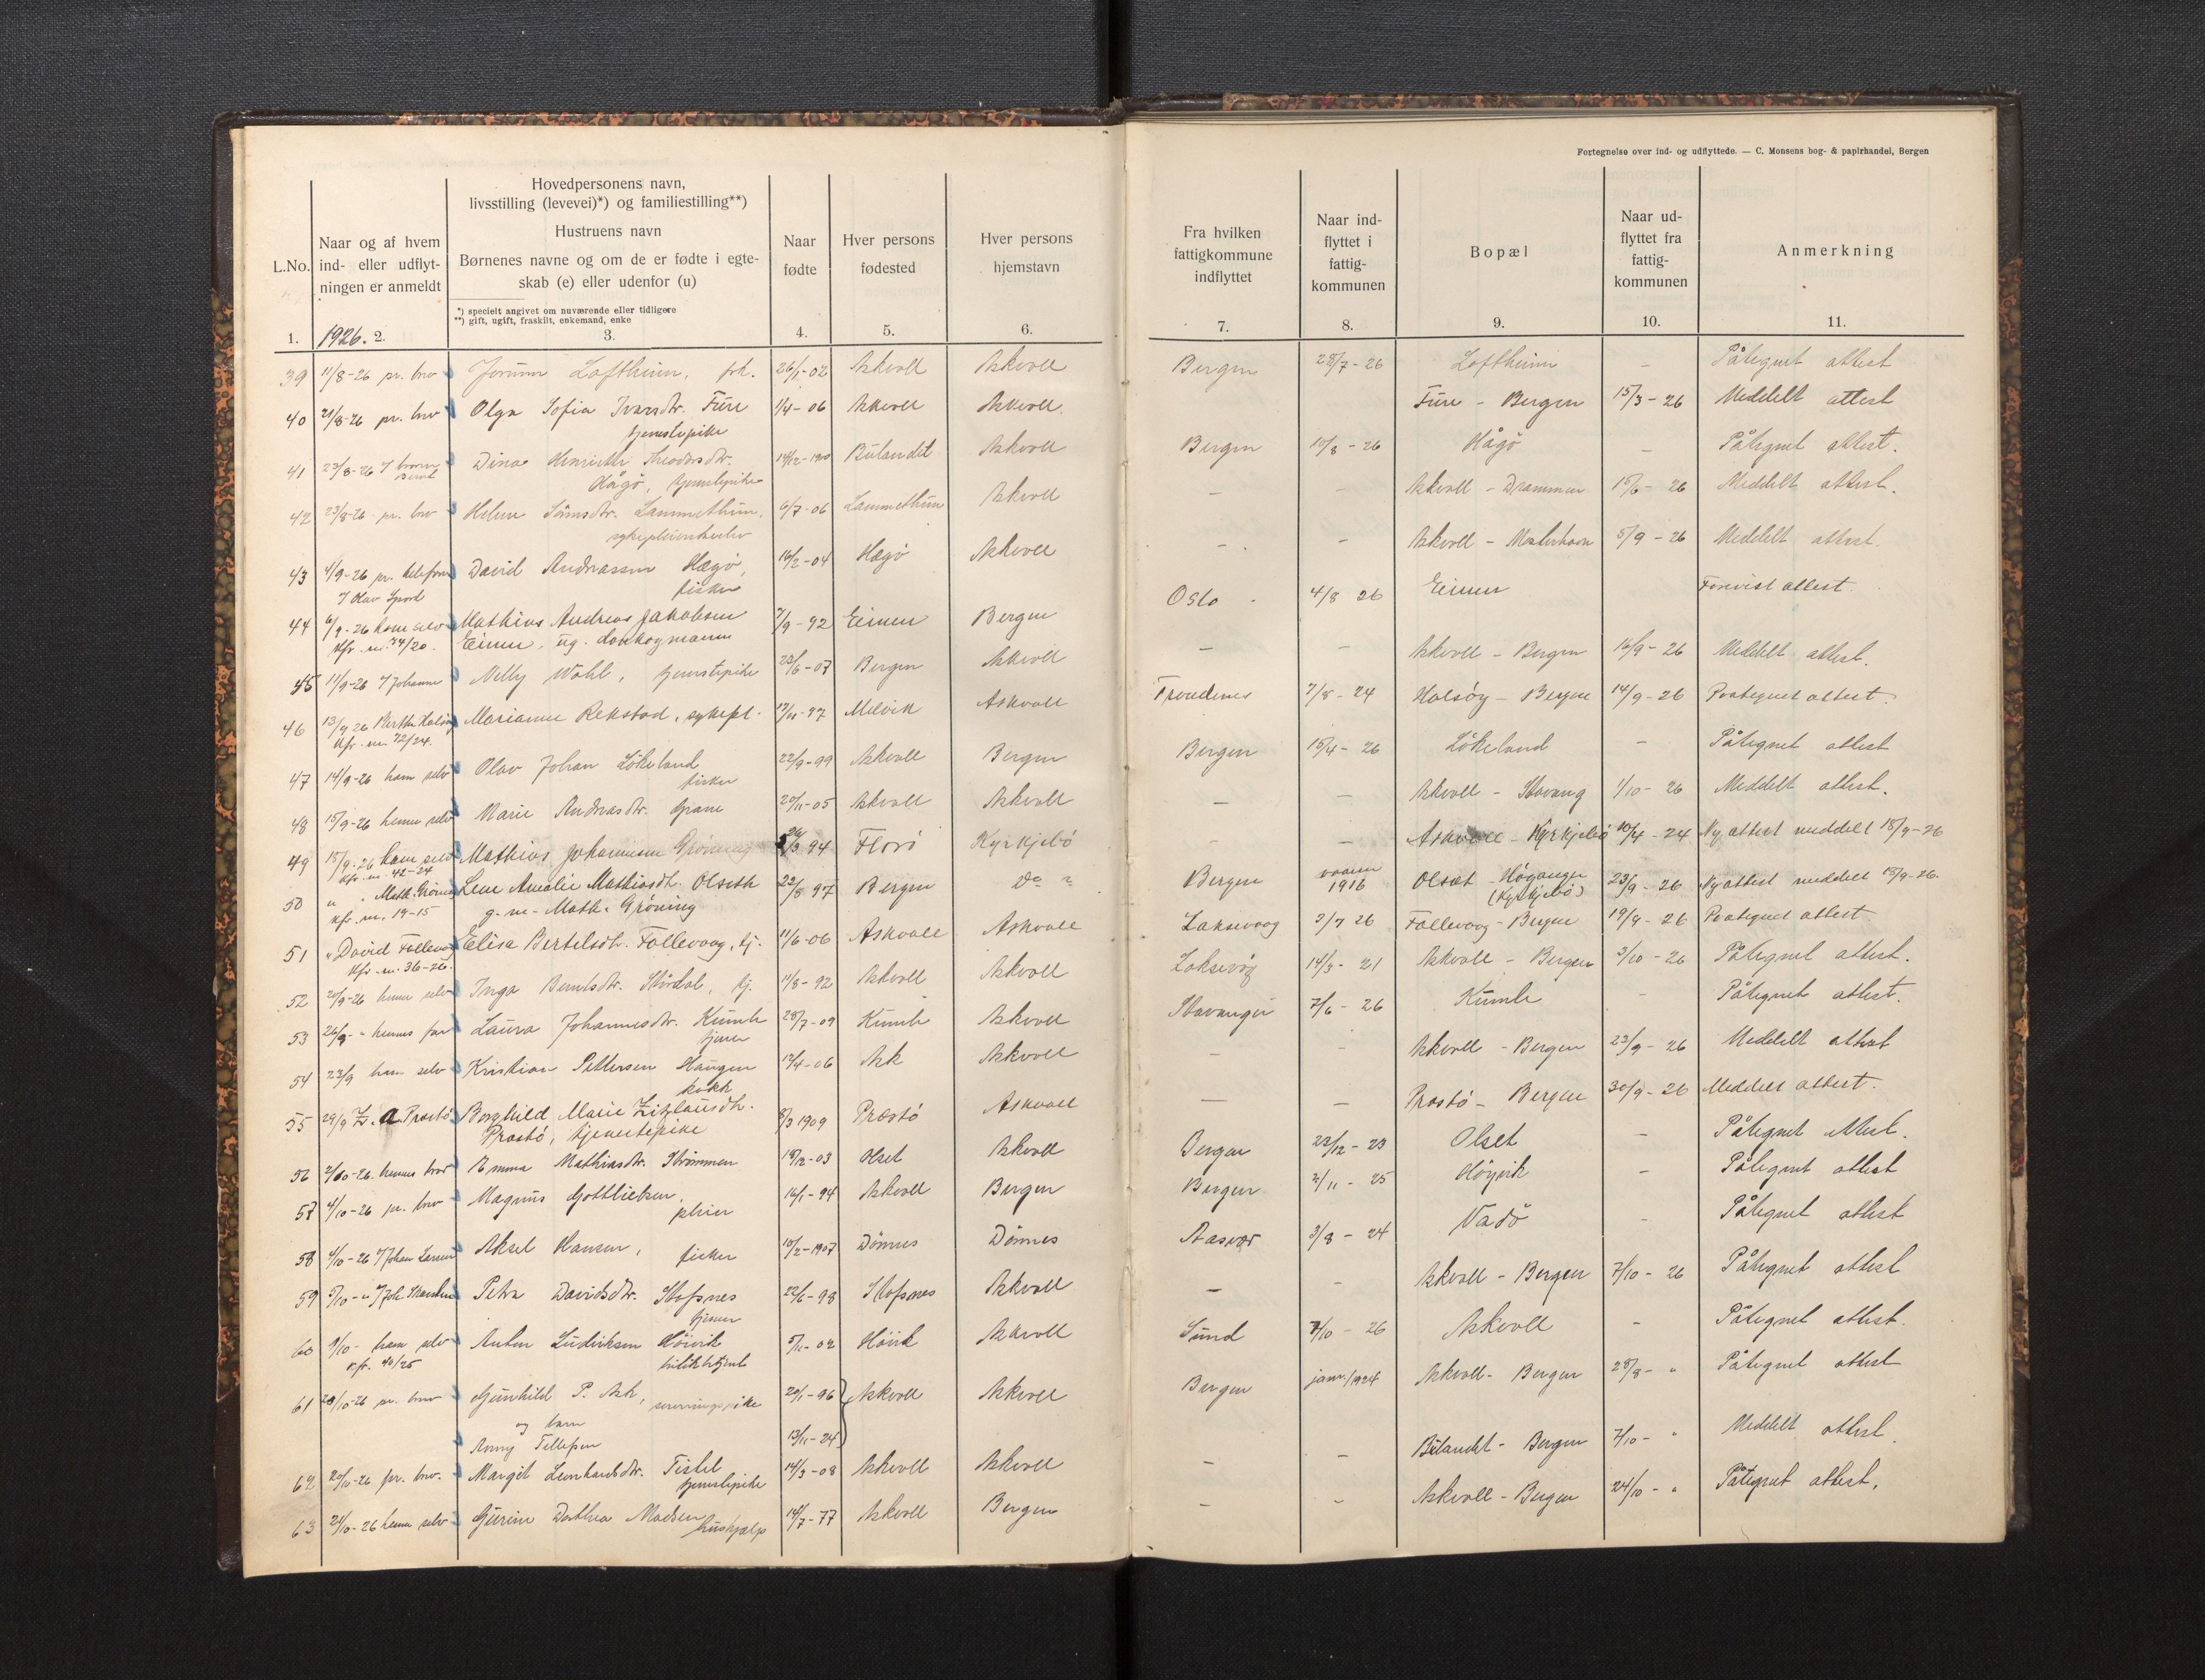 Fortegnelse over ind- og udflyttede. — C. Monsens bog- & papirhandel, Bergen
L.No.
Naar og af hvem
ind- eller udflyt-
ningen er anmeldt
Hovedpersonens navn,
livsstilling (levevei)*) og familiestilling**)
Hustruens navn
Børnenes navne og om de er fødte i egte-
skab (e) eller udenfor (u)
*) specielt angivet om nuværende eller tidligere
**) gift, ugift, fraskilt, enkemand, enke
Naar
fødte
Hver persons
fødested
Hver persons
hjemstavn
Fra hvilken
fattigkommune
indflyttet
Naar ind-
flyttet i
fattig-
kommunen
Bopæl
Naar ud-
flyttet fra
fattig-
kommunen
Anmerkning
1. 1926. 2. 3. 4. 5. 6. 7. 8. 9. 10. 11.
39 11/8-26 pr. brev Jorunn Loftheim, frk. 26/1-02 Askvoll Askvoll Bergen 28/7-26 Loftheim - Påtegnet attest
40 21/8-26 pr. brev Olga Sofia Ivarsdtr. Fure 1/4-06 Askvoll Askvoll Fure - Bergen 15/3-26 Meddelt attest
tjenestepike
41 23/8-26 Dina Henriette Teodorsdtr. 14/12-1900 Bulandet Askvoll Bergen 10/8-26 Hågø - Påtegnet attest.
Hågø, tjenestepike
42 23/8-26 pr. brev Helene Lammethun, 6/7-06 Lammethun Askvoll - - Askvoll - Drammen 15/6-26 Meddelt attest.
43 4/9-26 pr. telefon David Andreassen Hægø, 16/2-04 Hægø Askvoll - - Askvoll - 5/9-26 Meddelt attest.
fisker
44 6/9-26 ham selv Mathias Andreas Jakobsen 7/9-92 Eimen Bergen Oslo 4/8 26 Eimen Forevist attest.
kfr. nr. 74/20. Eimen, ug.
45 11/9-26 Nelly Wahl, tjenestepike 23/6-07 Bergen Askvoll - - Askvoll - Bergen 16/9-26 Meddelt attest.
46 13/9 26 Berthe Halsøy Marianne Rekstad, sykepl. 17/11-97 Milvik Askvoll Trondenes 7/8-24 Halsøy - Bergen 14/9-26 Paategnet attest.
kfr. nr. 72/24.
47 14/9-26 ham selv Olav Johan Løkeland 22/9-99 Askvoll Bergen Bergen 15/4-26 Løkeland - Påtegnet attest
fisker
48 15/9-26 henne selv Marie Andreasdtr. Grane 20/11-05 Askvoll Askvoll - - Askvoll - Stavang 1/10-26 Meddelt attest.
49 15/9-26 ham selv Mathias Johannesen Grøning 94 Florø Kyrkjebø - - Askvoll - Kyrkjebø 10/4-24 Ny attest meddelt 15/9-26
kfr. nr. 42-24
50 " Math. Grøning Lene Amalie Mathiasdtr. Olseth 22/8 97 Bergen Do Bergen vaaren 1916 Olsæt - Høyanger (Kyrkjebø) 23/9-26 Ny attest meddelt 15/9-26
kfr. nr. 19-15 g. m. Math. Grøning
51 " David Follevaag Elise Bertelsdtr. Follevaag, tj. 11/6-06 Askvoll Askvoll Laksevaag 2/7 26 Follevaag - Bergen 19/9-26 Paategnet attest.
kfr. nr. 36-26.
52 20/9-26 henne selv Inga Berntsdtr. tj. 11/8-92 Askvoll Askvoll Laksevåg 14/3-21 Askvoll - Bergen 3/10-26 Påtegnet attest.
53 26/9 - hennes far Laura Johannesdtr. Kumle 28/7-09 Kumle Askvoll Stavanger 7/6-26 Kumle - Påtegnet attest.
tjener
54 23/9 ham selv Kristian Pettersen Haugen 12/4-06 Ask Askvoll - - Askvoll - Bergen 23/9-26 Meddelt attest
kokk
55 29/9 Z. A. Prestø Borghild Marie Zitzlausdtr. 8/3 1909 Præstø Askvoll - - Præstø - Bergen 30/9-26 Meddelt attest.
Prestø, tjenestepike
56 2/10-26. hennes bror Emma Mathiasdtr. Strømmen 18/12-03 Olset Askvoll Bergen 23/12-23 Olset - Påtegnet attest.
57 4/10-26 pr. brev Magnus Gottliebsen, 16/1-94 Askvoll Bergen Bergen 2/11-25 Høyvik - Påtegnet attest
58 4/10-26 Johan Larsen Aksel Hansen, fisker 10/2-1907 Dønnes Dønnes Aasvær 3/8-24 Vadø - Påtegnet attest
59 5/10-" Petra Davidsdtr. Stafsnes 22/6-98 Stafsnes Askvoll - - Askvoll - Bergen 7/10-26 Påtegnet attest
tjener
60 9/10- ham selv Anton Ludviksen Høivik 5/11-02 Høivik Askvoll Sund 7/10-26 Askvoll - Påtegnet attest.
kfr. 40/25
61 20/10-26 pr. brev Gunhild P. Ask, serveringspike 20/1-96 Askvoll Askvoll Bergen janr./1924 Askvoll - Bergen 28/8-" Påtegnet attest
og barn
Anny Tellefsen 13/11-24
62 20/10-26 pr. brev. Margit Lenhardsdtr. Tistel 14/3-08 Askvoll Askvoll - - Bulandet - Bergen 7/10-" Meddelt attest.
tjenestepike
63 21/10-26 henne selv Gurine Dorthea Madsen 14/7-77 Askvoll Bergen - - Askvoll - Bergen 24/10-" Påtegnet attest.
hushjælp